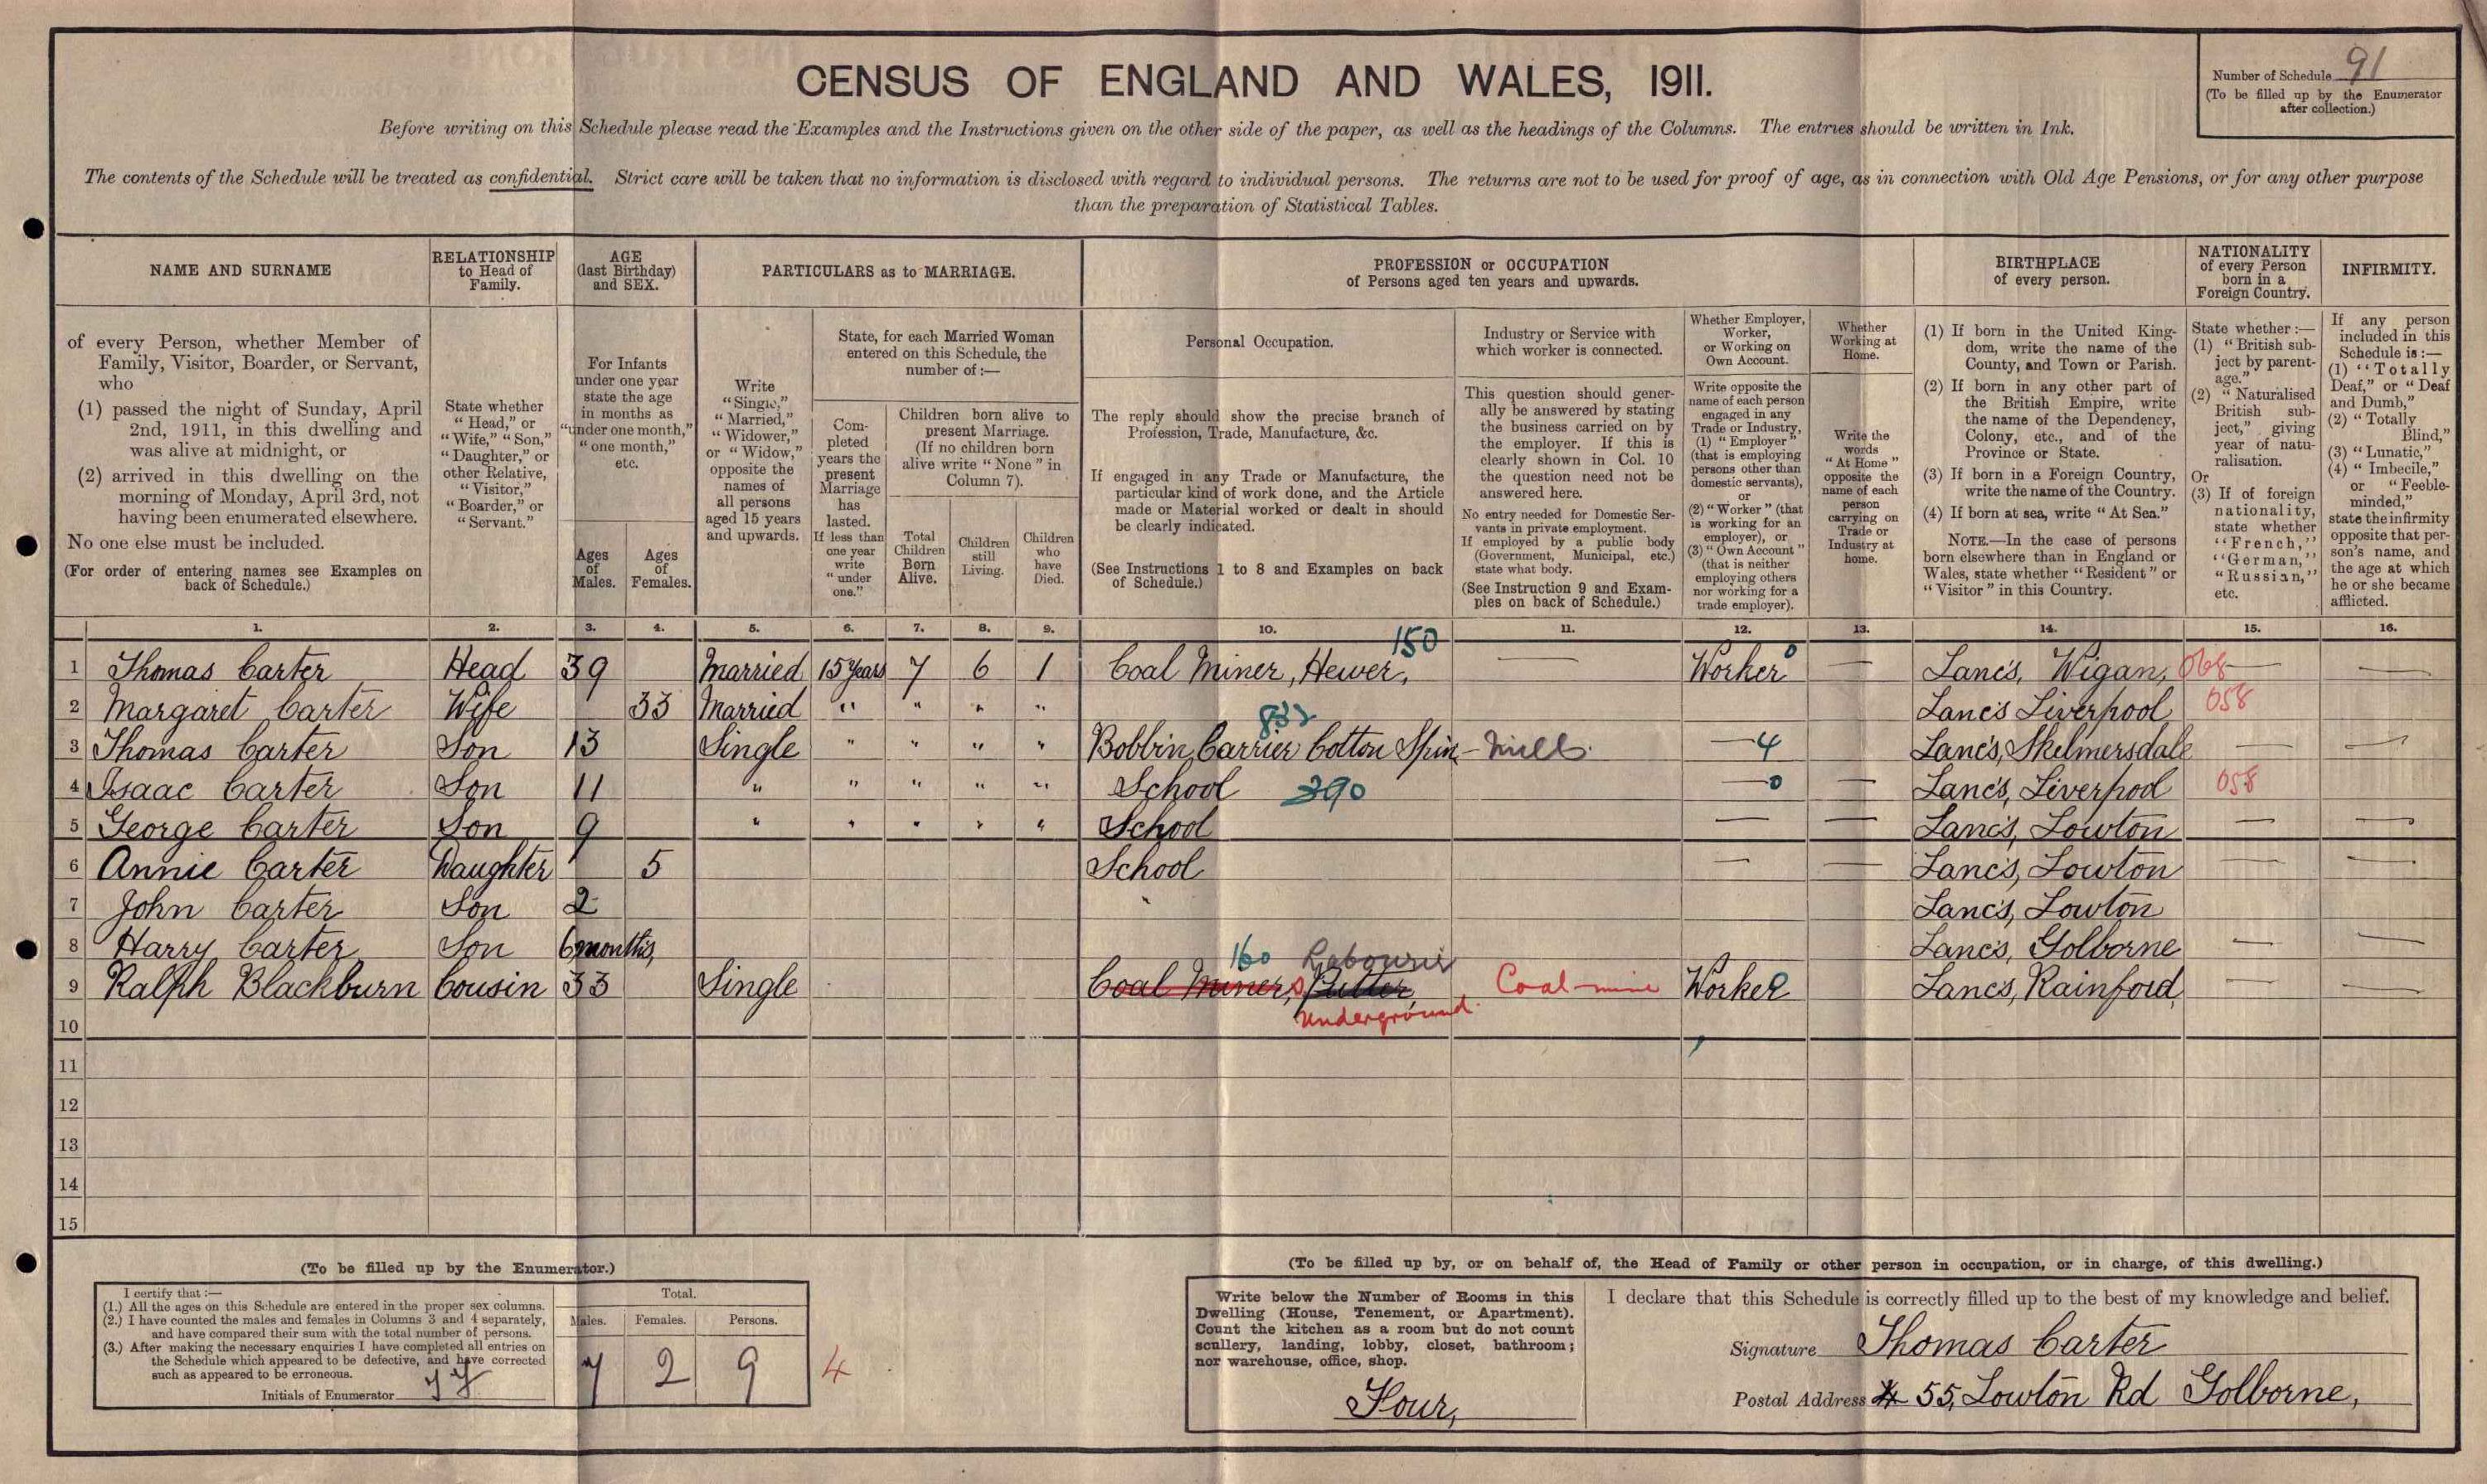 CENSUS OF ENGLAND AND WALES, 1911.
Number of Schedule 91
(To be filled up by the Enumerator
after collection.)
Before writing on this Schedule please read the Examples and the Instructions given on the other side of the paper, as well as the headings of the Columns. The entries should be written in Ink.
The contents of the Schedule will be treated as confidential. Strict care will be taken that no information is disclosed with regard to individual persons. The returns are not to be used for proof of age, as in connection with Old Age Pensions, or for any other purpose
than the preparation of Statistical Tables.
NAME AND SURNAME
RELATIONSHIP
to Head of
Family.
AGE
(last Birthday)
and SEX.
PARTICULARS as to MARRIAGE.
PROFESSION or OCCUPATION
of Persons aged ten years and upwards.
BIRTHPLACE
of every person.
NATIONALITY
of every Person
born in a
Foreign Country.
INFIRMITY.
of every Person, whether Member of
Family, Visitor, Boarder, or Servant,
who
(1) passed the night of Sunday, April
2nd, 1911, in this dwelling and
was alive at midnight, or
(2) arrived in this dwelling on the
morning of Monday, April 3rd, not
having been enumerated elsewhere.
No one else must be included.
(For order of entering names see Examples on
back of Schedule.)
State whether
"Head," or
"Wife," "Son,"
"Daughter," or
other Relative,
"Visitor,"
"Boarder," or
"Servant."
For Infants
under one year
state the age
in months as
"under one month,"
"one month,"
etc.
Ages
of
Males.
Ages
of
Females.
Write
"Single,"
"Married,"
"Widower,"
or "Widow,"
opposite the
names of
all persons
aged 15 years
and upwards.
State, for each Married Woman
entered on this Schedule, the
number of :—
Com-
pleted
years the
present
Marriage
has
lasted.
If less than
one year
write
"under
one."
Children born alive to
present Marriage.
(If no children born
alive write "None" in
Column 7).
Total
Children
Born
Alive.
Children
still
Living.
Children
who
have
Died.
Personal Occupation.
The reply should show the precise branch of
Profession, Trade, Manufacture, &c.
If engaged in any Trade or Manufacture, the
particular kind of work done, and the Article
made or Material worked or dealt in should
be clearly indicated.
(See Instructions 1 to 8 and Examples on back
of Schedule.)
Industry or Service with
which worker is connected.
This question should gener-
ally be answered by stating
the business carried on by
the employer. If this is
clearly shown in Col. 10
the question need not be
answered here.
No entry needed for Domestic Ser-
vants in private employment.
If employed by a public body
(Government, Municipal, etc.)
state what body.
(See Instruction 9 and Exam-
ples on back of Schedule.)
Whether Employer,
Worker,
or Working on
Own Account.
Write opposite the
name of each person
engaged in any
Trade or Industry,
(1) "Employer"
(that is employing
persons other than
domestic servants),
or
(2) "Worker" (that
is working for an
employer), or
(3) "Own Account"
(that is neither
employing others
nor working for a
trade employer).
Whether
Working at
Home.
Write the
words
"At Home"
opposite the
name of each
person
carrying on
Trade or
Industry at
home.
(1) If born in the United King-
dom, write the name of the
County, and Town or Parish.
(2) If born in any other part of
the British Empire, write
the name of the Dependency,
Colony, etc., and of the
Province or State.
(3) If born in a Foreign Country,
write the name of the Country.
(4) If born at sea, write "At Sea."
NOTE.—In the case of persons
born elsewhere than in England or
Wales, state whether "Resident" or
"Visitor" in this Country.
State whether :—
(1) "British sub-
ject by parent-
age."
(2) "Naturalised
British sub-
ject," giving
year of natu-
ralisation.
Or
(3) If of foreign
nationality,
state whether
"French,"
"German,"
"Russian,"
etc.
If any person
included in this
Schedule is :—
(1) "Totally
Deaf," or "Deaf
and Dumb,"
(2) "Totally
Blind,"
(3) "Lunatic,"
(4) "Imbecile,"
or "Feeble-
minded,"
state the infirmity
opposite that per-
son's name, and
the age at which
he or she became
afflicted.
1. 2. 3. 4. 5. 6. 7. 8. 9. 10. 11. 12. 13. 14. 15. 16.
150
1 Thomas Carter Head 39 Married 15 Years 7 6 1 Coal Miner, Hewer, — Worker 0 — Lancs, Wigan, 068 — —
2 Margaret Carter Wife 33 Married " " " " Lancs Liverpool 058
832
3 Thomas Carter Son 13 Single " " " " Bobbin Carrier Cotton Spin- Mill. — 4 Lancs, Skelmersdale — —
4 Isaac Carter Son 11 " " " " " School 390 — 0 — Lancs, Liverpool 058
5 George Carter Son 9 " " " " " School — — Lancs, Lowton — —
6 Annie Carter Daughter 5 School — — Lancs, Lowton — —
7 John Carter Son 2 Lancs, Lowton
8 Harry Carter Son 6 months, Lancs, Golborne — —
160 Labourer
9 Ralph Blackburn Cousin 33 Single Coal Miner, Coal-mine Worker Lancs, Rainford, — —
Underground.
10
11
12
13
14
15
(To be filled up by the Enumerator.)
I certify that :—
(1.) All the ages on this Schedule are entered in the proper sex columns.
(2.) I have counted the males and females in Columns 3 and 4 separately,
and have compared their sum with the total number of persons.
(3.) After making the necessary enquiries I have completed all entries on
the Schedule which appeared to be defective, and have corrected
such as appeared to be erroneous.
Initials of Enumerator
Total.
Males. Females. Persons.
7 2 9 4
(To be filled up by, or on behalf of, the Head of Family or other person in occupation, or in charge, of this dwelling.)
Write below the Number of Rooms in this
Dwelling (House, Tenement, or Apartment).
Count the kitchen as a room but do not count
scullery, landing, lobby, closet, bathroom;
nor warehouse, office, shop.
Four,
I declare that this Schedule is correctly filled up to the best of my knowledge and belief.
Signature Thomas Carter
Postal Address 55, Lowton Rd Golborne,